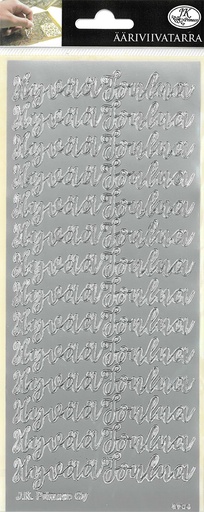 JK
ÄÄRIVIIVATARRA
Hyvää Joulua
Hyvää Joulua
Hyvää Joulua
Hyvää Joulua
Hyvää Joulua
Hyvää Joulua
Hyvää Joulua
Hyvää Joulua
Hyvää Joulua
Hyvää Joulua
Hyvää Joulua
Hyvää Joulua
Hyvää Joulua
J.K. Primeco Oy